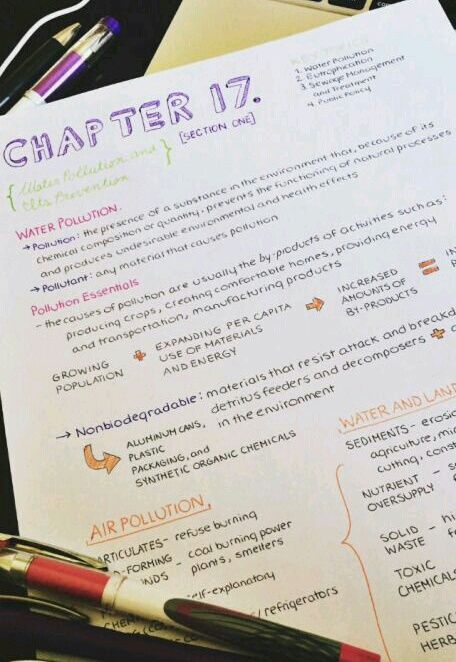 CHAPTER 17.
[SECTION ONE]
{Water Pollution and
Its Prevention}
1. Water Pollution
2. Eutrophication
3. Sewage Management
and Treatment
4. Public Policy
WATER POLLUTION.
→ Pollution: the presence of a substance in the environment that, because of its
chemical composition or quantity, prevents the functioning of natural processes
and produces undesirable environmental and health effects
→ Pollutant: any material that causes pollution
Pollution Essentials
- the causes of pollution are usually the by-products of activities such as:
producing crops, creating comfortable homes, providing energy
and transportation, manufacturing products
GROWING
POPULATION
+
EXPANDING PER CAPITA
USE OF MATERIALS
AND ENERGY
⇨
INCREASED
AMOUNTS OF
BY-PRODUCTS
=
→ Nonbiodegradable: materials that resist attack and
detritus feeders and decomposers +
in the environment
ALUMINUM CANS,
PLASTIC
PACKAGING, and
SYNTHETIC ORGANIC CHEMICALS
AIR POLLUTION.
refuse burning
-FORMING - coal burning power
plants, smelters
refrigerators
WATER AND LAND
SEDIMENTS -
NUTRIENT -
OVERSUPPLY
SOLID -
WASTE
TOXIC